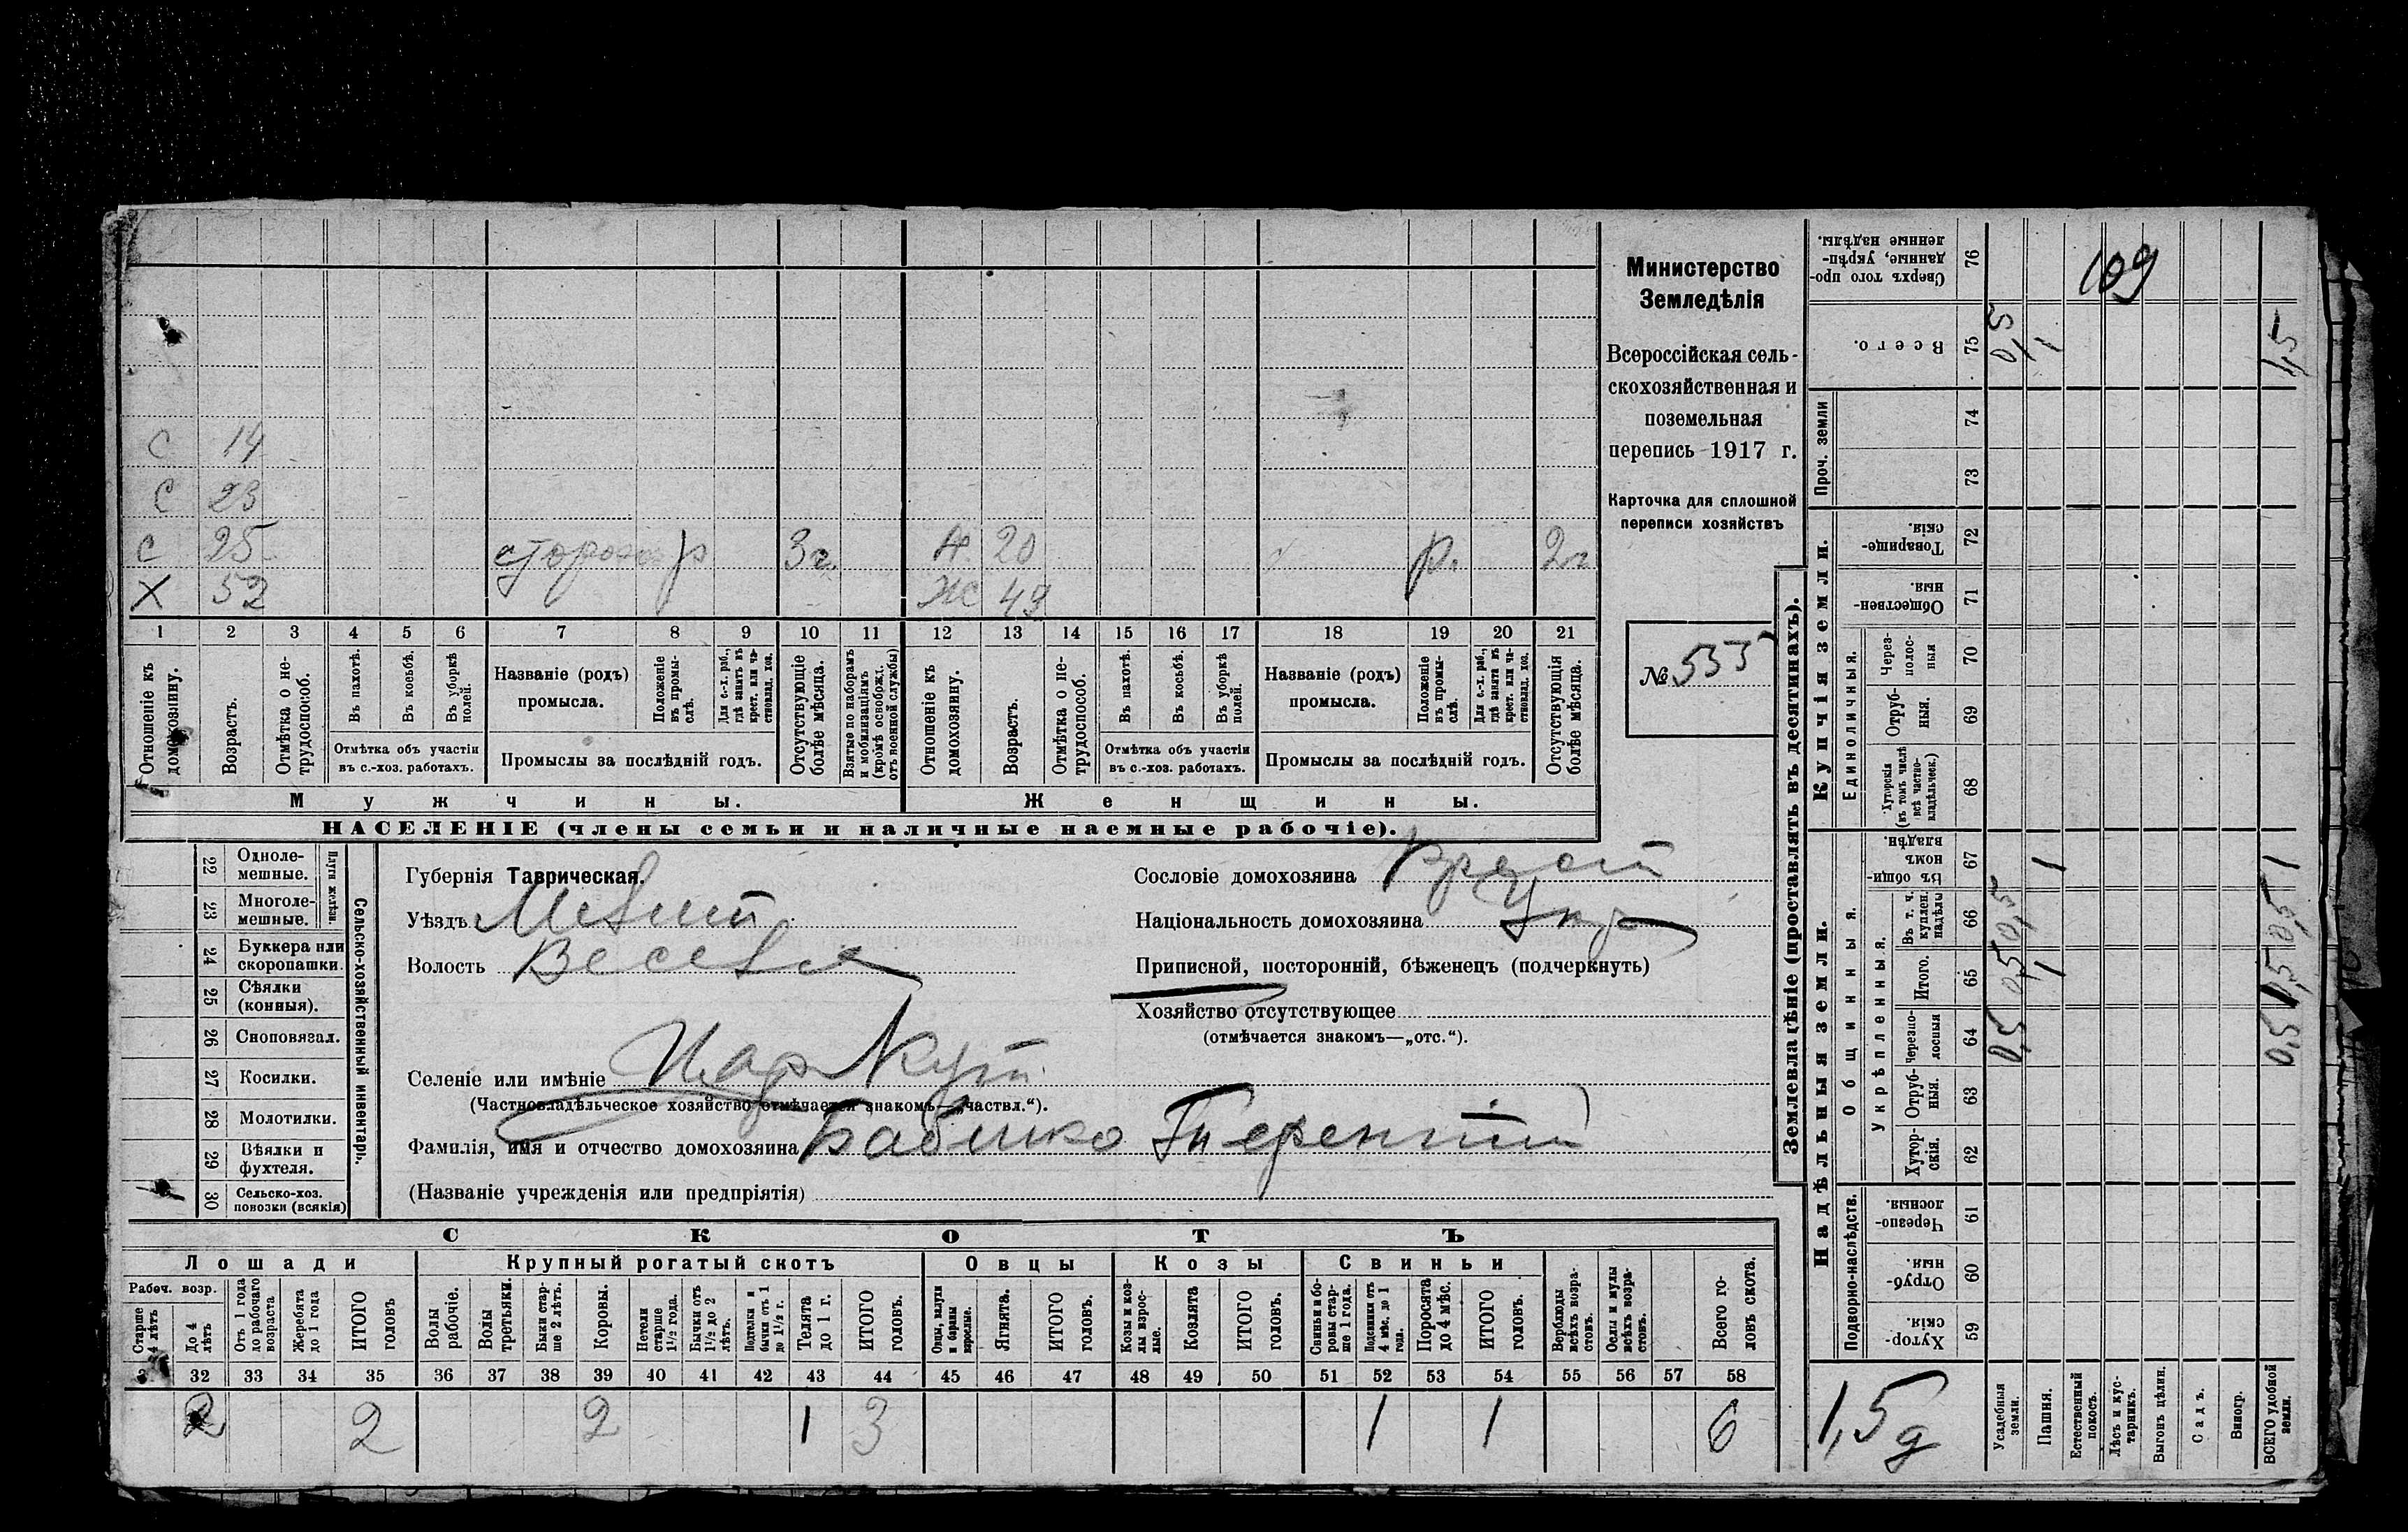 С 14
С 23
С 25 сторож р 3 г. 20 р. 2 г
Х 52 Ж 49
1 2 3 4 5 6 7 8 9 10 11 12 13 14 15 16 17 18 19 20 21
Отношеніе къ домохозяину.
Возрастъ.
Отмѣтка о нетрудоспособ.
Въ пахотѣ.
Въ косьбѣ.
Въ уборкѣ полей.
Отмѣтка объ участіи
въ с.-хоз. работахъ.
Названіе (родъ)
промысла.
Положеніе въ промыслѣ.
Для с.-х. раб., гдѣ занятъ въ крест. или частновлад. хоз.
Промыслы за послѣдній годъ.
Отсутствующіе болѣе мѣсяца.
Взятые по наборамъ и мобилизаціямъ (кромѣ освобожд. отъ военной службы)
Отношеніе къ домохозяину.
Возрастъ.
Отмѣтка о нетрудоспособ.
Въ пахотѣ.
Въ косьбѣ.
Въ уборкѣ полей.
Отмѣтка объ участіи
въ с.-хоз. работахъ.
Названіе (родъ)
промысла.
Положеніе въ промыслѣ.
Для с.-х. раб., гдѣ занята въ крест. или частновлад. хоз.
Промыслы за послѣдній годъ.
Отсутствующія болѣе мѣсяца.
Мужчины.
Женщины.
НАСЕЛЕНІЕ (члены семьи и наличные наемные рабочіе).
Министерство
Земледѣлія
Всероссійская сель-
скохозяйственная и
поземельная
перепись 1917 г.
Карточка для сплошной
переписи хозяйствъ
№ 535
Сельско-хозяйственный инвентарь.
Плуги желѣзн.
22 Одноле-
мешные.
23 Многоле-
мешные.
24 Буккера или
скоропашки.
25 Сѣялки
(конныя).
26 Сноповязал.
27 Косилки.
28 Молотилки.
29 Вѣялки и
фухтеля.
30 Сельско-хоз.
повозки (всякія)
Губернія Таврическая.
Уѣздъ Мелит
Волость Весел
Селеніе или имѣніе Цар Кут
(Частновладѣльческое хозяйство отмѣчается знакомъ—„частвл.“).
Фамилія, имя и отчество домохозяина Бабенко Терентій
(Названіе учрежденія или предпріятія)
Сословіе домохозяина Крест
Національность домохозяина Укр
Приписной, посторонній, бѣженецъ (подчеркнуть)
Хозяйство отсутствующее
(отмѣчается знакомъ—„отс.“).
СКОТЪ
Лошади
Крупный рогатый скотъ
Овцы
Козы
Свиньи
Рабоч. возр.
Старше 4 лѣтъ
До 4 лѣтъ
Отъ 1 года до рабочаго возраста
Жеребята до 1 года
ИТОГО головъ
Волы рабочіе.
Волы третьяки.
Быки старше 2 лѣтъ.
Коровы.
Нетели старше 1½ года.
Бычки отъ 1½ до 2 лѣтъ.
Подтелки и бычки отъ 1 до 1½ г.
Телята до 1 г.
ИТОГО головъ.
Овцы, валухи и бараны взрослые.
Ягнята.
ИТОГО головъ.
Козы и козлы взрослые.
Козлята
ИТОГО головъ.
Свиньи и боровы старше 1 года.
Подсвинки отъ 4 мѣс. до 1 года.
Поросята до 4 мѣс.
ИТОГО головъ.
Верблюды всѣхъ возрастовъ.
Ослы и мулы всѣхъ возрастовъ.
Всего головъ скота.
32 33 34 35 36 37 38 39 40 41 42 43 44 45 46 47 48 49 50 51 52 53 54 55 56 57 58
2 2 2 1 3 1 1 6
Землевладѣніе (проставлять въ десятинахъ).
Надѣльныя земли.
Купчія земли.
Проч. земли
Подворно-наслѣдств.
Общинныя.
Укрѣпленныя.
Единоличныя.
Сверхъ того проданные, укрѣпленные надѣлы. 76
109
Всего. 75 0,5 1 1,5
74
73
Товарищескія. 72
Общественныя. 71
Черезполосныя 70
Отрубныя. 69
Хуторскія (въ томъ числѣ всѣ частновладѣльческ.) 68
Въ общинномъ владѣн. 67 1 1
Въ т. ч. куплен. надѣлы 66 0,5 0,5
Итого. 65 0,5 1 0,5
Черезполосныя 64 0,5 0,5
Отрубныя. 63
Хуторскія. 62
Черезполосныя. 61
Отрубныя. 60
Хуторскія. 59
1,5 д
Усадебныя земли.
Пашня.
Естественный покосъ.
Лѣсъ и кустарникъ.
Выгонъ цѣлин.
Садъ.
Виногр.
ВСЕГО удобной земли.